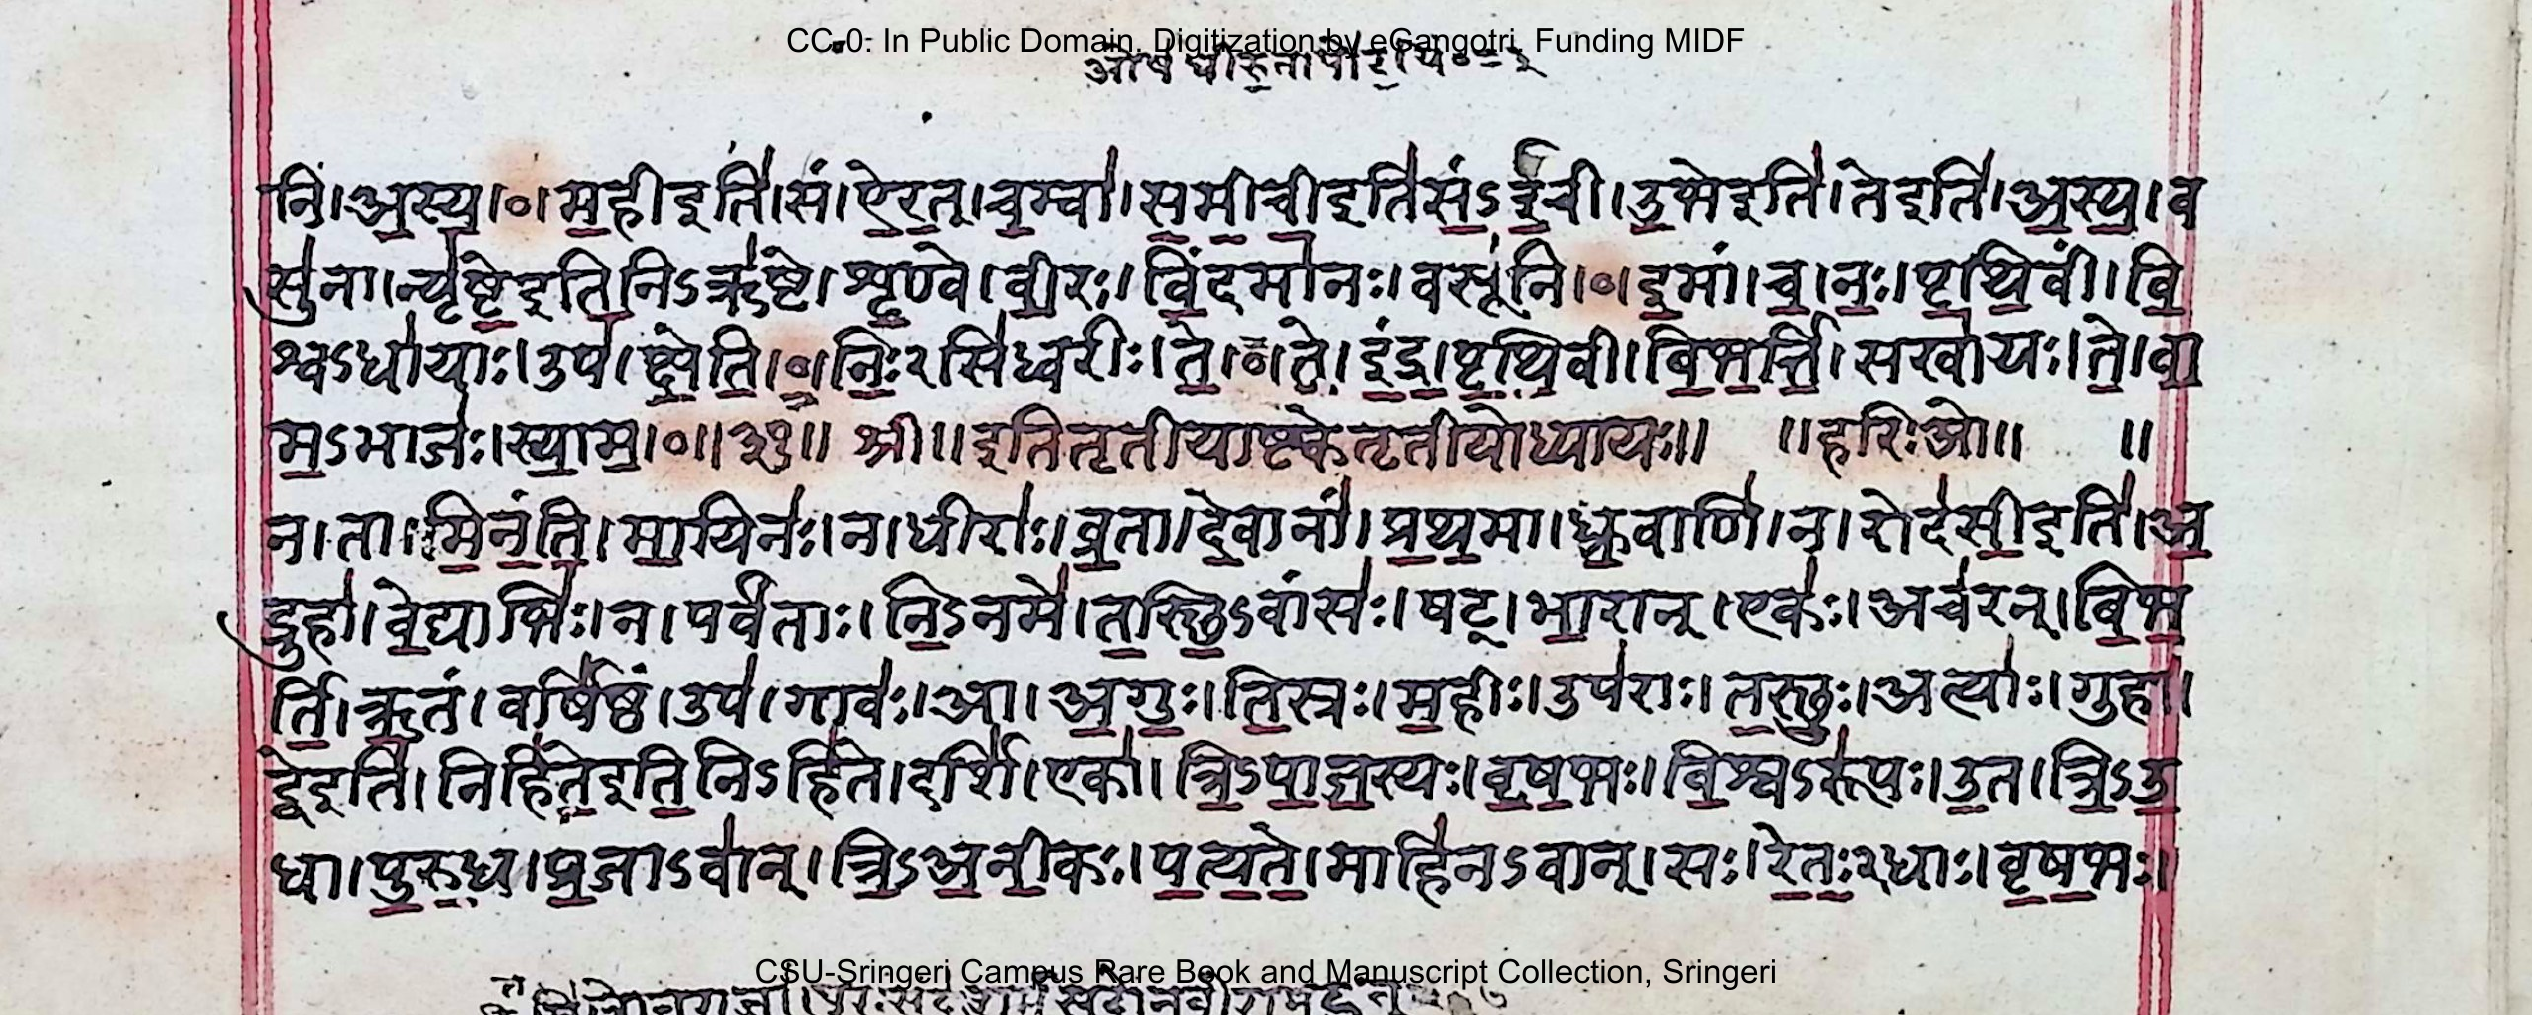 CC-0: In Public Domain. Digitization by eGangotri. Funding MIDF
नि॑।अ॒स्य॒।०।म॒हीइति॑।सं।ऐ॒र॒त्।च॒म्वा॑।स॒मी॒ची॒इति॑सं॒ऽई॒ची।उ॒भेइति॑।तेइति॑।अ॒स्य॒।व
सु॑ना।न्यृ॑ष्टे॒इति॒निऽऋ॑ष्टे।शृ॒ण्वे।वी॒रः।विं॒दमा॑नः।वसू॑नि।०।इ॒मां।च॒।नः॒।पृ॒थि॒वीं।वि॒
श्वऽधा॑याः।उप॑।क्षे॒ति॒।०।निः॒२सिध्वरीः।ते॒।०।ते॒।इं॒द्र॒।पृ॒थि॒वी।बि॒भ॒र्त्ति॒।सखा॑यः।ते॒।वा॒
म॒ऽभाजः॑।स्या॒म॒।०॥३१॥ श्री॥इतितृतीयाष्टकेतृतीयोध्यायः॥ ॥हरिःओ॥ ॥
न।ता।मि॒नं॒ति॒।मा॒यिनः॑।न।धीराः॑।व्र॒ता।दे॒वानां॑।प्र॒थ॒मा।ध्रु॒वाणि॑।न।रोद॑सी॒इति॑।अ॒
द्रुहा॑।वे॒द्याभिः॑।न।पर्व॑ताः।नि॒ऽनमे॑।त॒स्थि॒ऽवांसः॑।षट्।भा॒रान्।एकः॑।अच॑रन्।बि॒भ॒
र्ति॒।ऋ॒तं।वर्षि॑ष्ठं।उप॑।गावः॑।आ।अ॒गुः॒।ति॒स्रः।म॒हीः।उप॑राः।त॒स्थुः॒।अत्याः॑।गुहा॑।
द्वेइति॑।निहि॑ते॒इति॒निऽहि॑ते।दर्शि॑।एका॑।त्रि॒ऽपा॒ज॒स्यः।वृ॒ष॒भः।वि॒श्वऽरू॑पः।उ॒त।त्रि॒ऽउ॒
धा।पु॒रु॒ध॒।प्र॒जाऽवा॑न्।त्रि॒ऽअ॒नी॒कः।प॒त्य॒ते॒।माहि॑नऽवान्।सः।रे॒तः॒२धाः।वृ॒ष॒भः।
CSU-Sringeri Campus Rare Book and Manuscript Collection, Sringeri